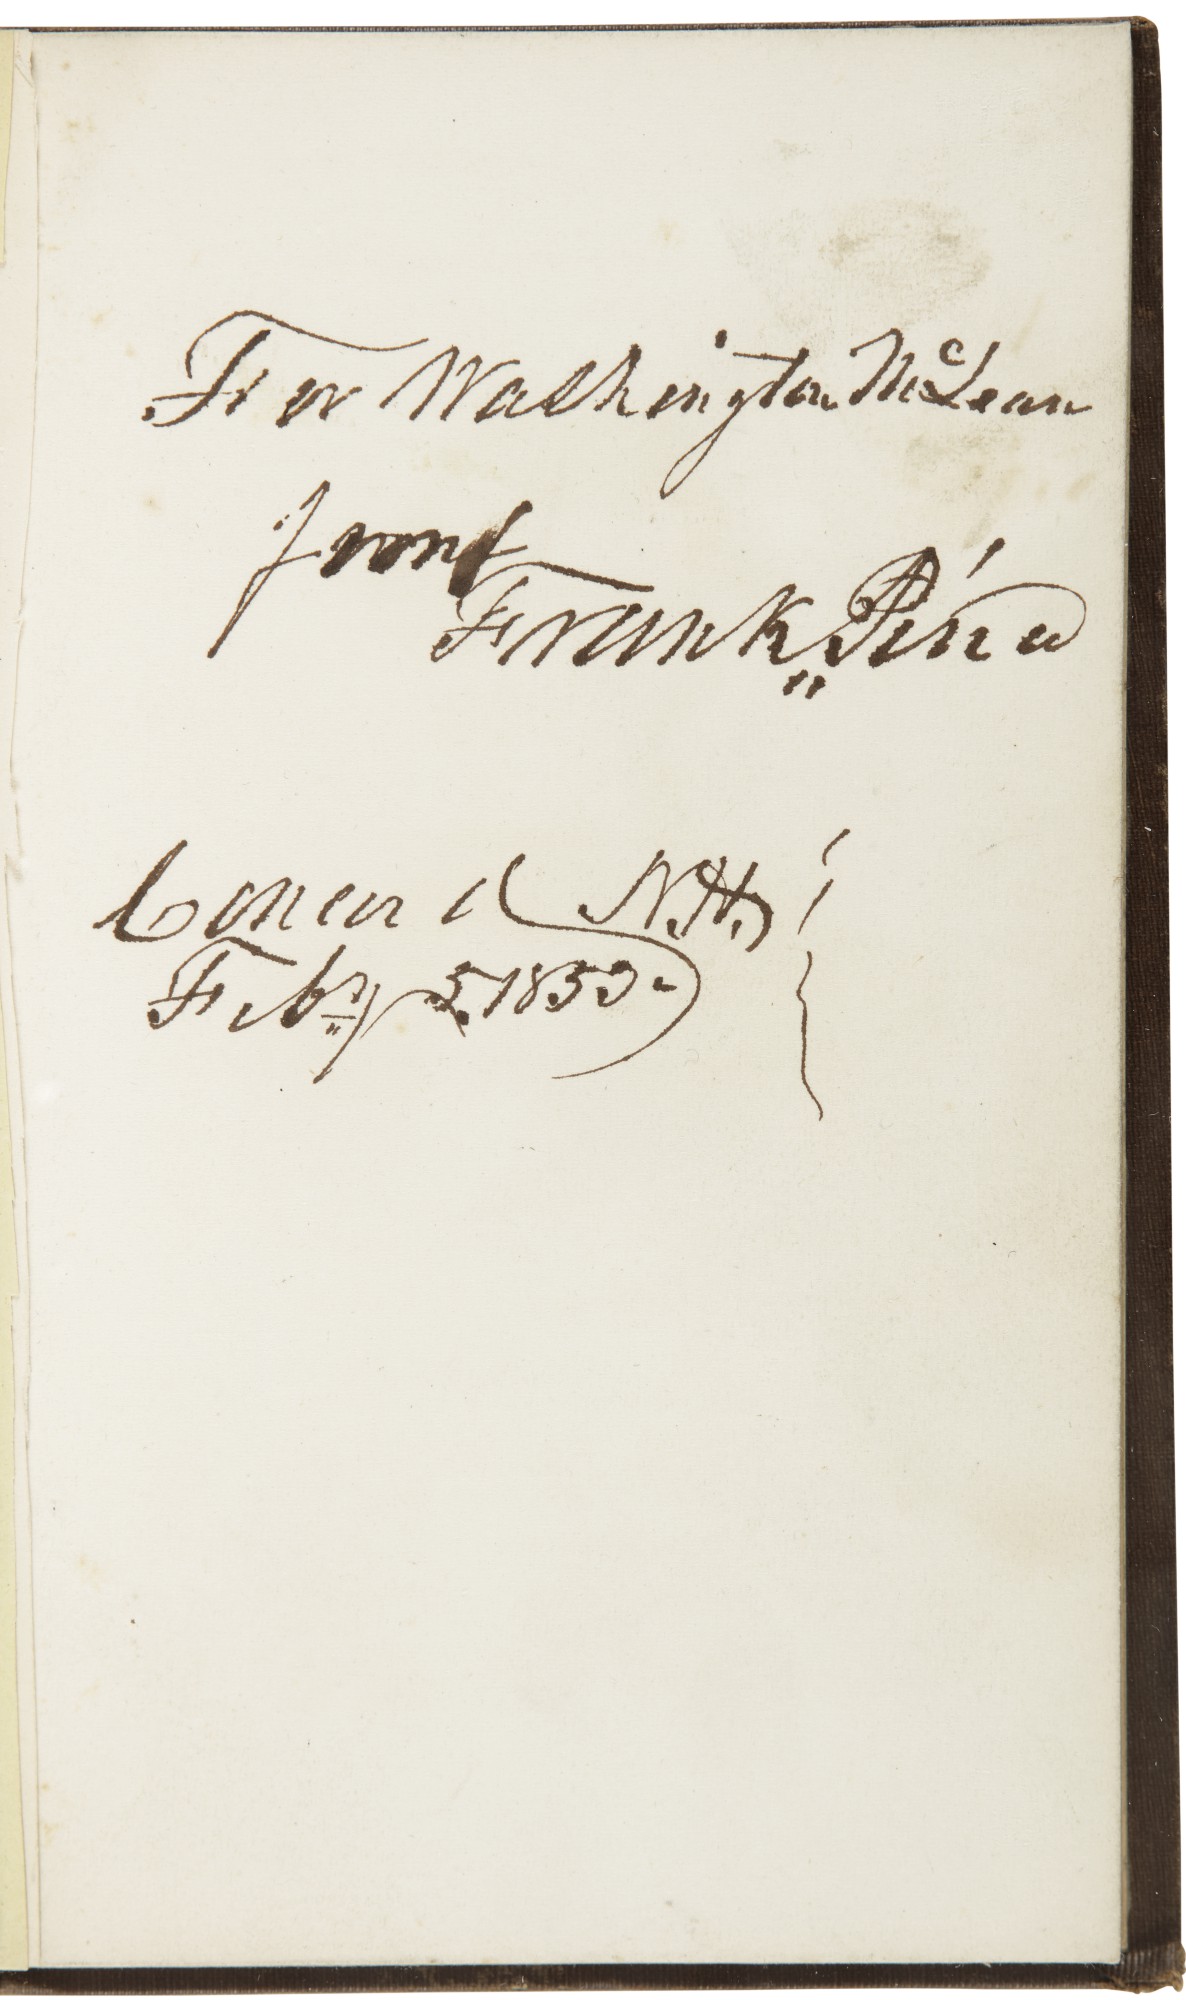 For Washington McLean
from
Frank Pierce
Concord N.H.
Feby 5. 1853.